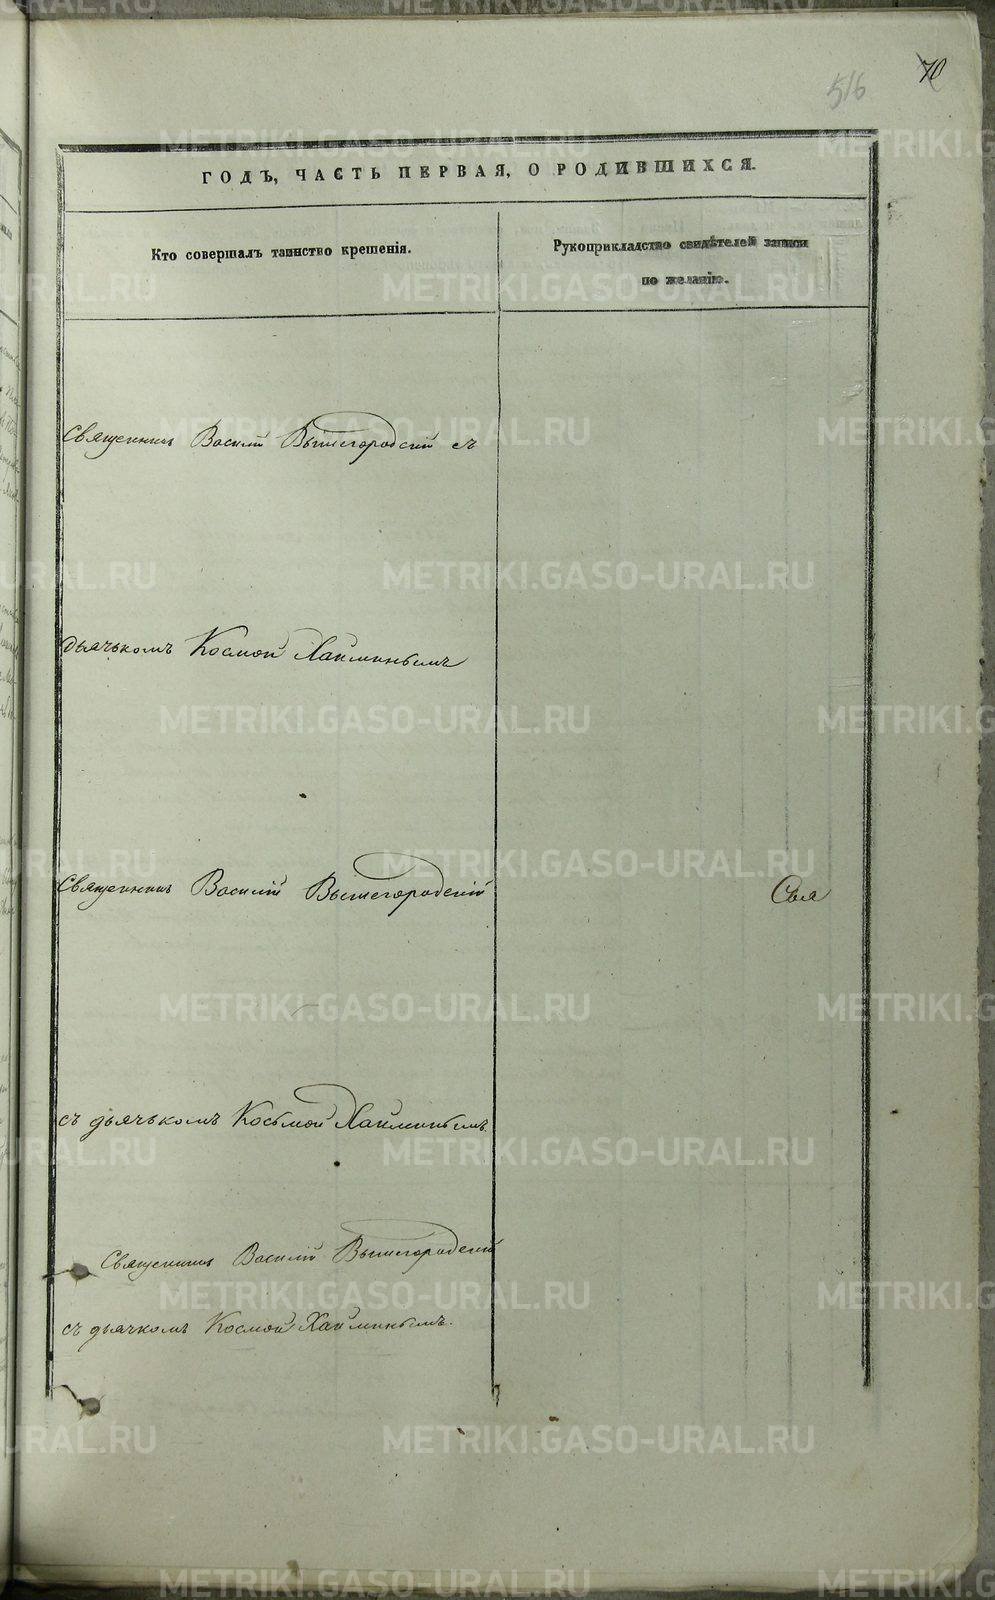 516 70
ГОДЪ, ЧАСТЬ ПЕРВАЯ, О РОДИВШИХСЯ.
Кто совершалъ таинство крешенія.
Рукоприкладство свидѣтелей записи
по желанію.
Священникъ Василій Вышегородскій съ
дьячькомъ Космой Хайминымъ
Священникъ Василій Вышегородскій
съ дьячькомъ Косьмой Хайминымъ.
Священникъ Василій Вышегородскій
съ дьячкомъ Космой Хайминымъ.
METRIKI.GASO-URAL.RU